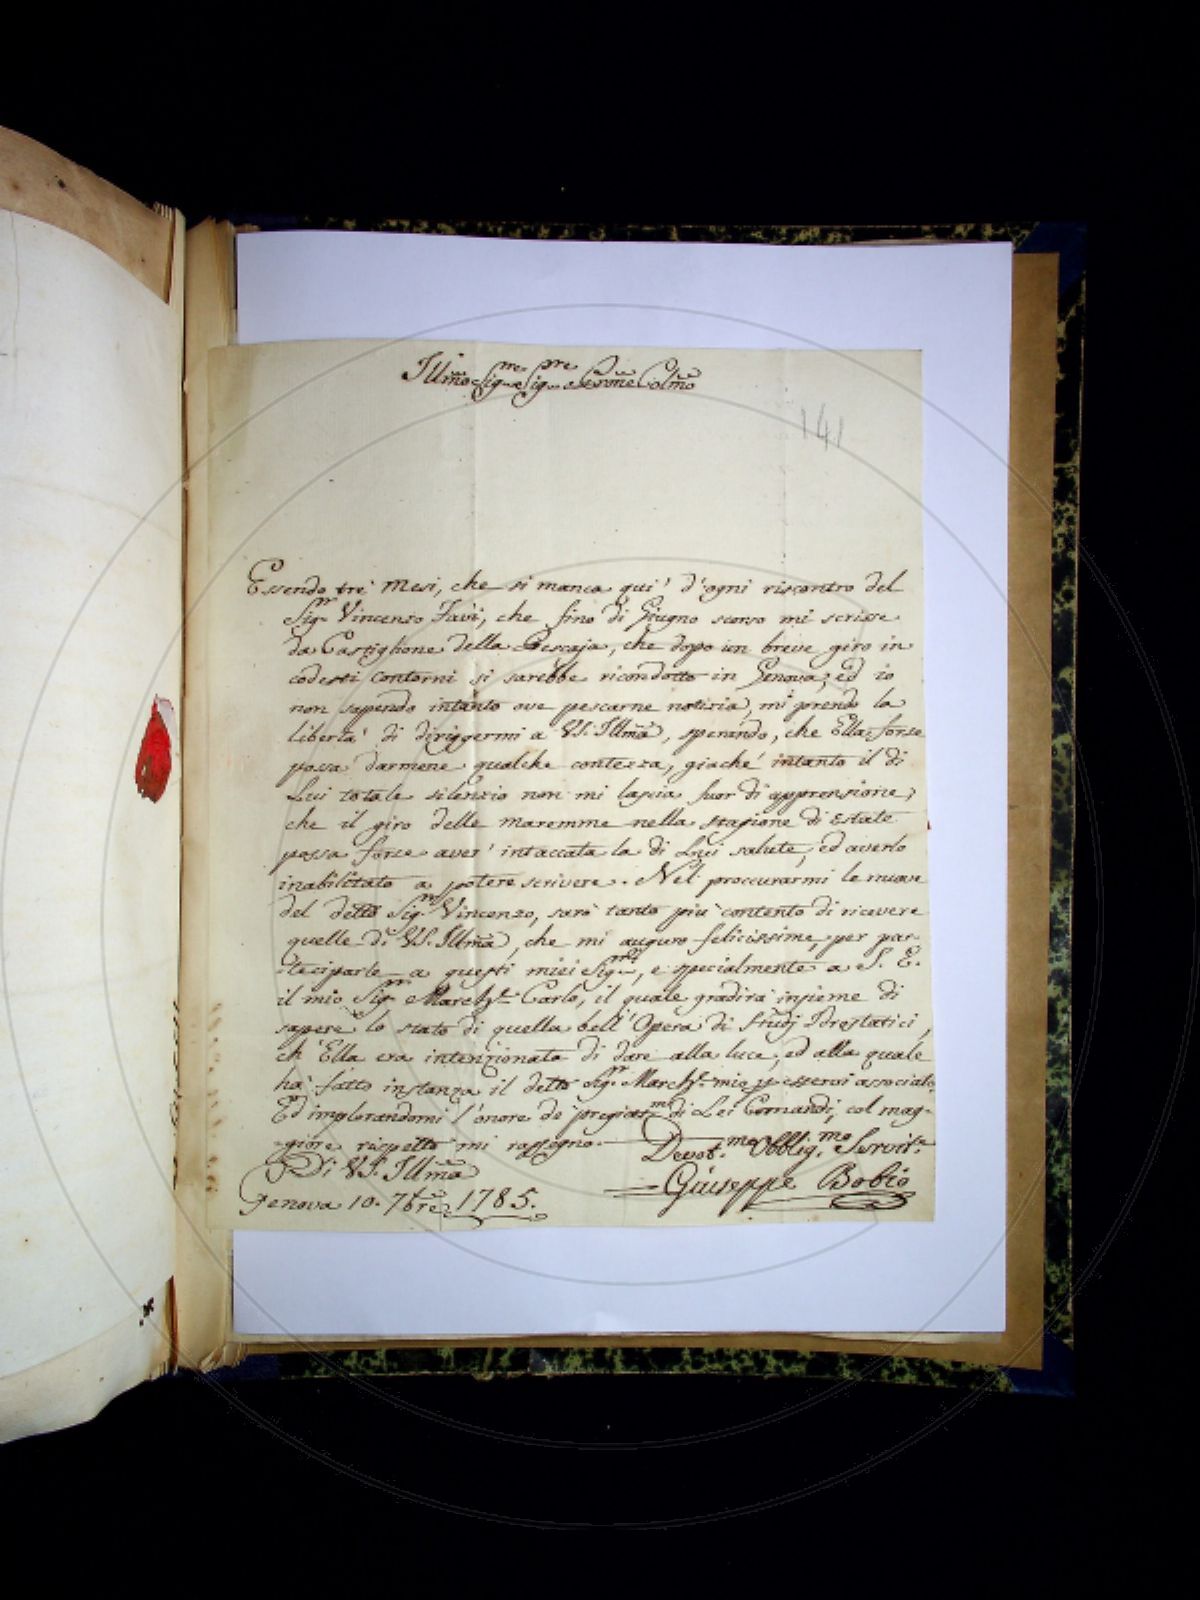 Illmo Sigre Sigre Prone Colmo
141
Essendo tre' Mesi, che si manca qui' d'ogni riscontro del
Sigr Vincenzo Favi, che fino di Giugno scorso mi scrisse
da Castiglione della Pescaja, che dopo un breve giro in
codesti contorni si sarebbe ricondotto in Genova, ed io
non sapendo intanto ove pescarne notizia, mi prendo la
liberta' di diriggermi a VS. Illma, sperando, che Ella forse
possa darmene qualche contezza, giache' intanto il di
Lui totale silenzio non mi lascia fuor di apprensione,
che il giro delle maremme nella stagione di Estate
possa forse aver' intaccata la di Lui salute, ed averlo
inabilitato a potere scrivere. Nel proccurarmi le nuove
del detto Sigr Vincenzo, saro' tanto piu' contento di ricevere
quelle di VS. Illma, che mi auguro felicissime, per par-
teciparle a questi miei Sigri, e specialmente a S. E.
il mio Sigr Marche Carlo, il quale gradira' insieme di
sapere lo stato di quella bell' Opera di Studj Idrostatici,
ch' Ella era intenzionata di dare alla luce, ed alla quale
ha' fatto instanza il detto Sigr Marche mio p esservi associato.
Ed implorandomi l'onore de' pregiatmi di Lei Comandi, col mag-
-giore rispetto mi rassegno.
Di VS. Illma
Devotmo Obbligmo Servitre
Genova 10. 7bre 1785.
Giuseppe Bobio